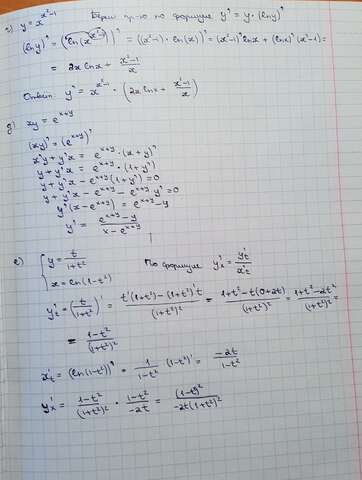 г) y = x^(x²-1) Берем пр-ю по формуле y' = y·(ln y)'
(ln y)' = (ln(x^(x²-1)))' = ((x²-1)·ln(x))' = (x²-1)' ln x + (ln x)'(x²-1) =
= 2x ln x + (x²-1)/x
Ответ y' = x^(x²-1) · (2x ln x + (x²-1)/x)
д) xy = e^(x+y)
(xy)' = (e^(x+y))'
x'y + y'x = e^(x+y) · (x+y)'
y + y'x = e^(x+y) · (1+y')
y + y'x - e^(x+y)(1+y') = 0
y + y'x - e^(x+y) - e^(x+y) y' = 0
y'(x - e^(x+y)) = e^(x+y) - y
y' = (e^(x+y) - y)/(x - e^(x+y))
е) { y = t/(1+t²) По формуле y'x = y't/x't
x = ln(1-t²)
y't = (t/(1+t²))' = (t'(1+t²) - (1+t²)'t)/(1+t²)² = (1+t² - t(0+2t))/(1+t²)² = (1+t²-2t²)/(1+t²)² =
= (1-t²)/(1+t²)²
x't = (ln(1-t²))' = 1/(1-t²) (1-t²)' = -2t/(1-t²)
y'x = (1-t²)/(1+t²)² · (1-t²)/(-2t) = (1-t²)²/(-2t(1+t²)²)